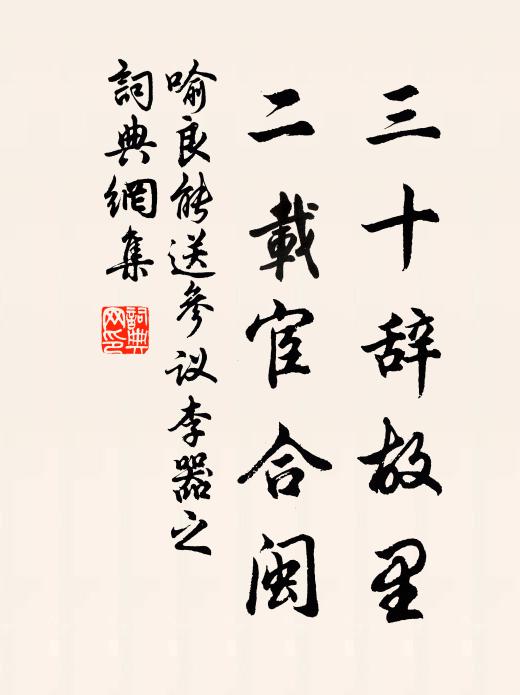 三十辞故里
二載宦合闽
喻良能送參议李器之
詞典網集
詞典网印